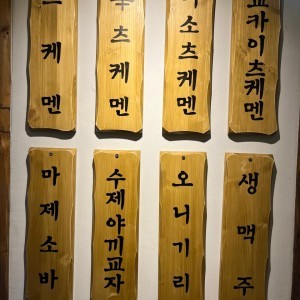 츠케멘
츠케멘
미소츠케멘
교카이츠케멘
마제소바
수제야끼교자
오니기리
생맥주